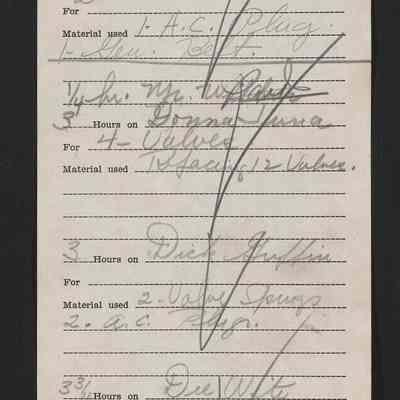 For
Material used 1- A.C. Plug.
1- Gen. Belt.
1/4 hr. Mr.
3 Hours on Donna
For 4- Valves
Material used 12 Valves.
3 Hours on Dick Griffin
For
Material used 2- Valve Springs
2- A.C. Plugs.
3 3/4 Hours on Dee